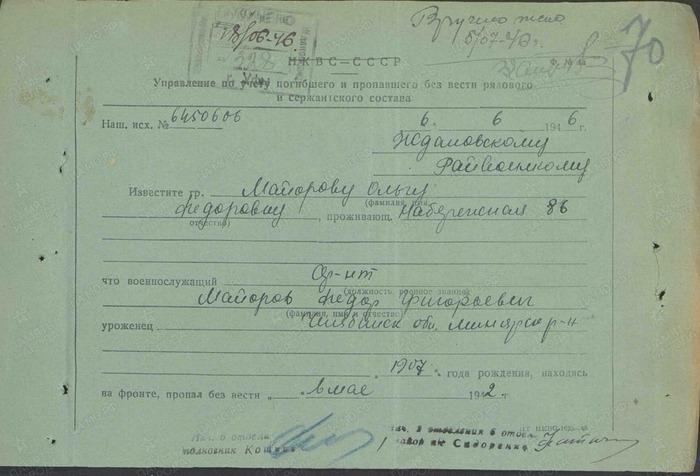 ПОЛУЧЕНО
18/06-46
Вручено жено
5/07-46г.
№ 298
70
МКВС—СССР
Управление по учету погибшего и пропавшего без вести рядового
и сержантского состава
Наш. исх. № 6450606
6. 6 1946г.
Ждановскому
Райвоенкому
Известите гр. Майорову Ольгу
(фамилия, имя,
Федоровну, проживающ. Набережная 86
отчество)
что военнослужащий Ср-нт
(должность, военное звание)
Майоров Федор Григорьевич
(фамилия, имя и отчество)
уроженец Челябинск обл. Миньярск р-н
1907 года рождения, находясь
на фронте, пропал без вести „ в мае 1942 г
Нач. 6 отдела
полковник
Нач. 3 отделения 6 отдел
майор Сидоренко